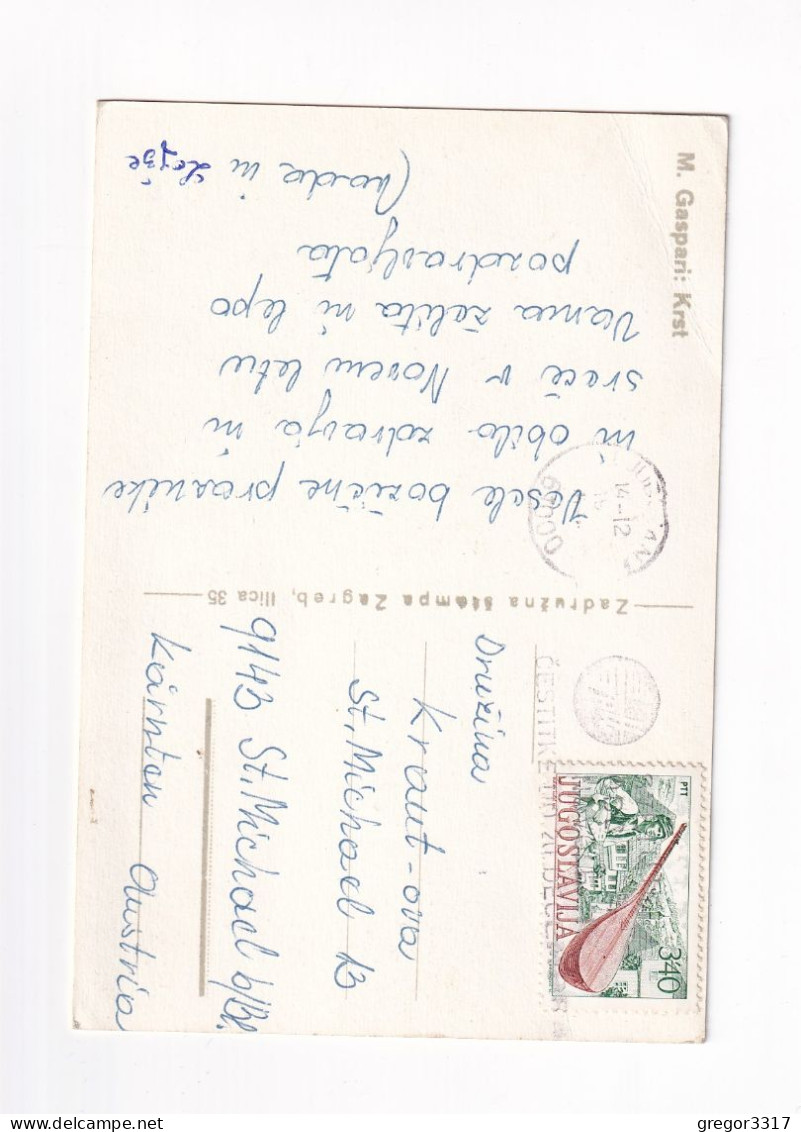 M. Gaspari: Krst
Vesele božične praznike
in obilo zdravja in
sreče v Novem letu
Vama želita in lepo
pozdravljata
in Lojze
Zadružna štampa Zagreb, Ilica 35
61000
14-12
ČESTITKE DO 20. DECEMBRA
PTT
JUGOSLAVIJA
3'40
Družina
Kraut-ova
St. Michael 13
9143 St. Michael b/Bl.
Kärnten Austria
gregor3317